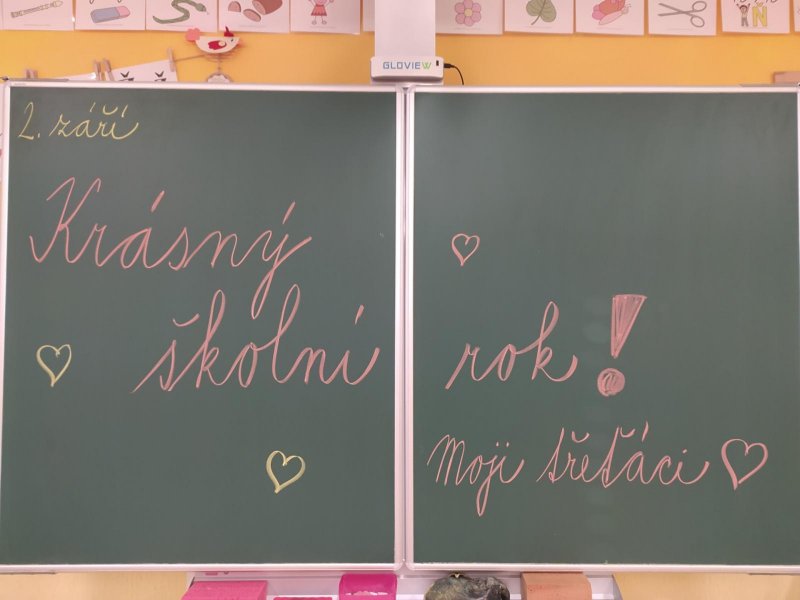 GLOVIEW
2. září
Krásný
školní rok!
Moji třeťáci